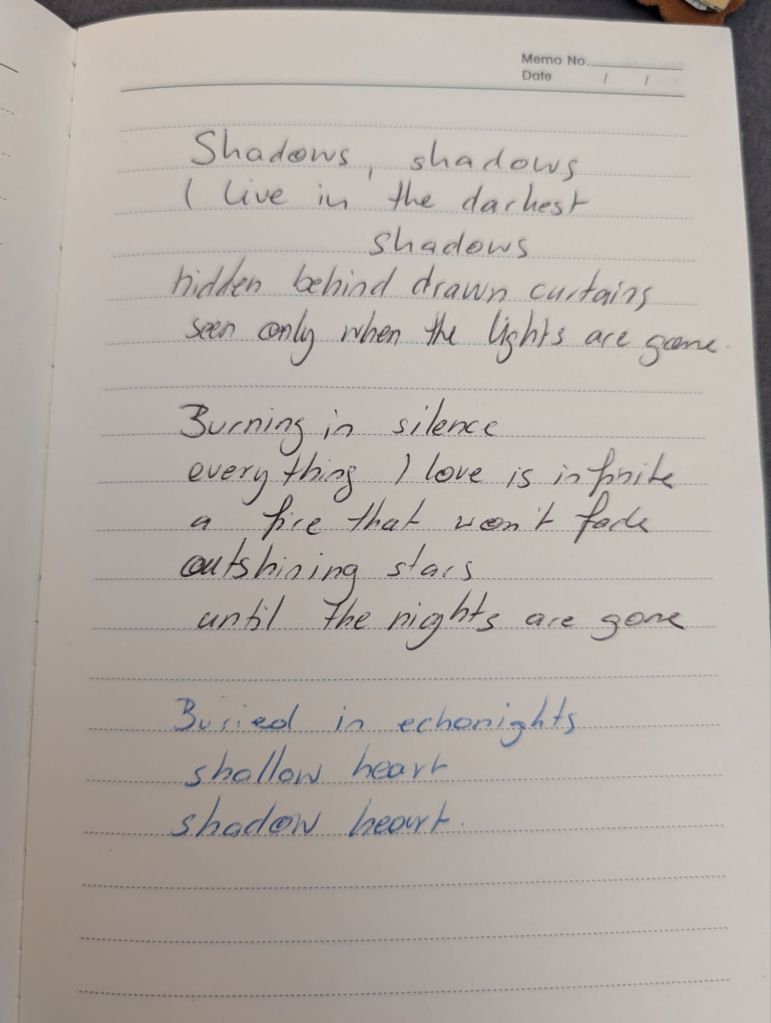 Memo No.
Date / /
Shadows, shadows
I live in the darkest
shadows
hidden behind drawn curtains
seen only when the lights are gone.
Burning in silence
everything I love is infinite
a fire that won't fade
outshining stars
until the nights are gone
Buried in echonights
shallow heart
shadow heart.